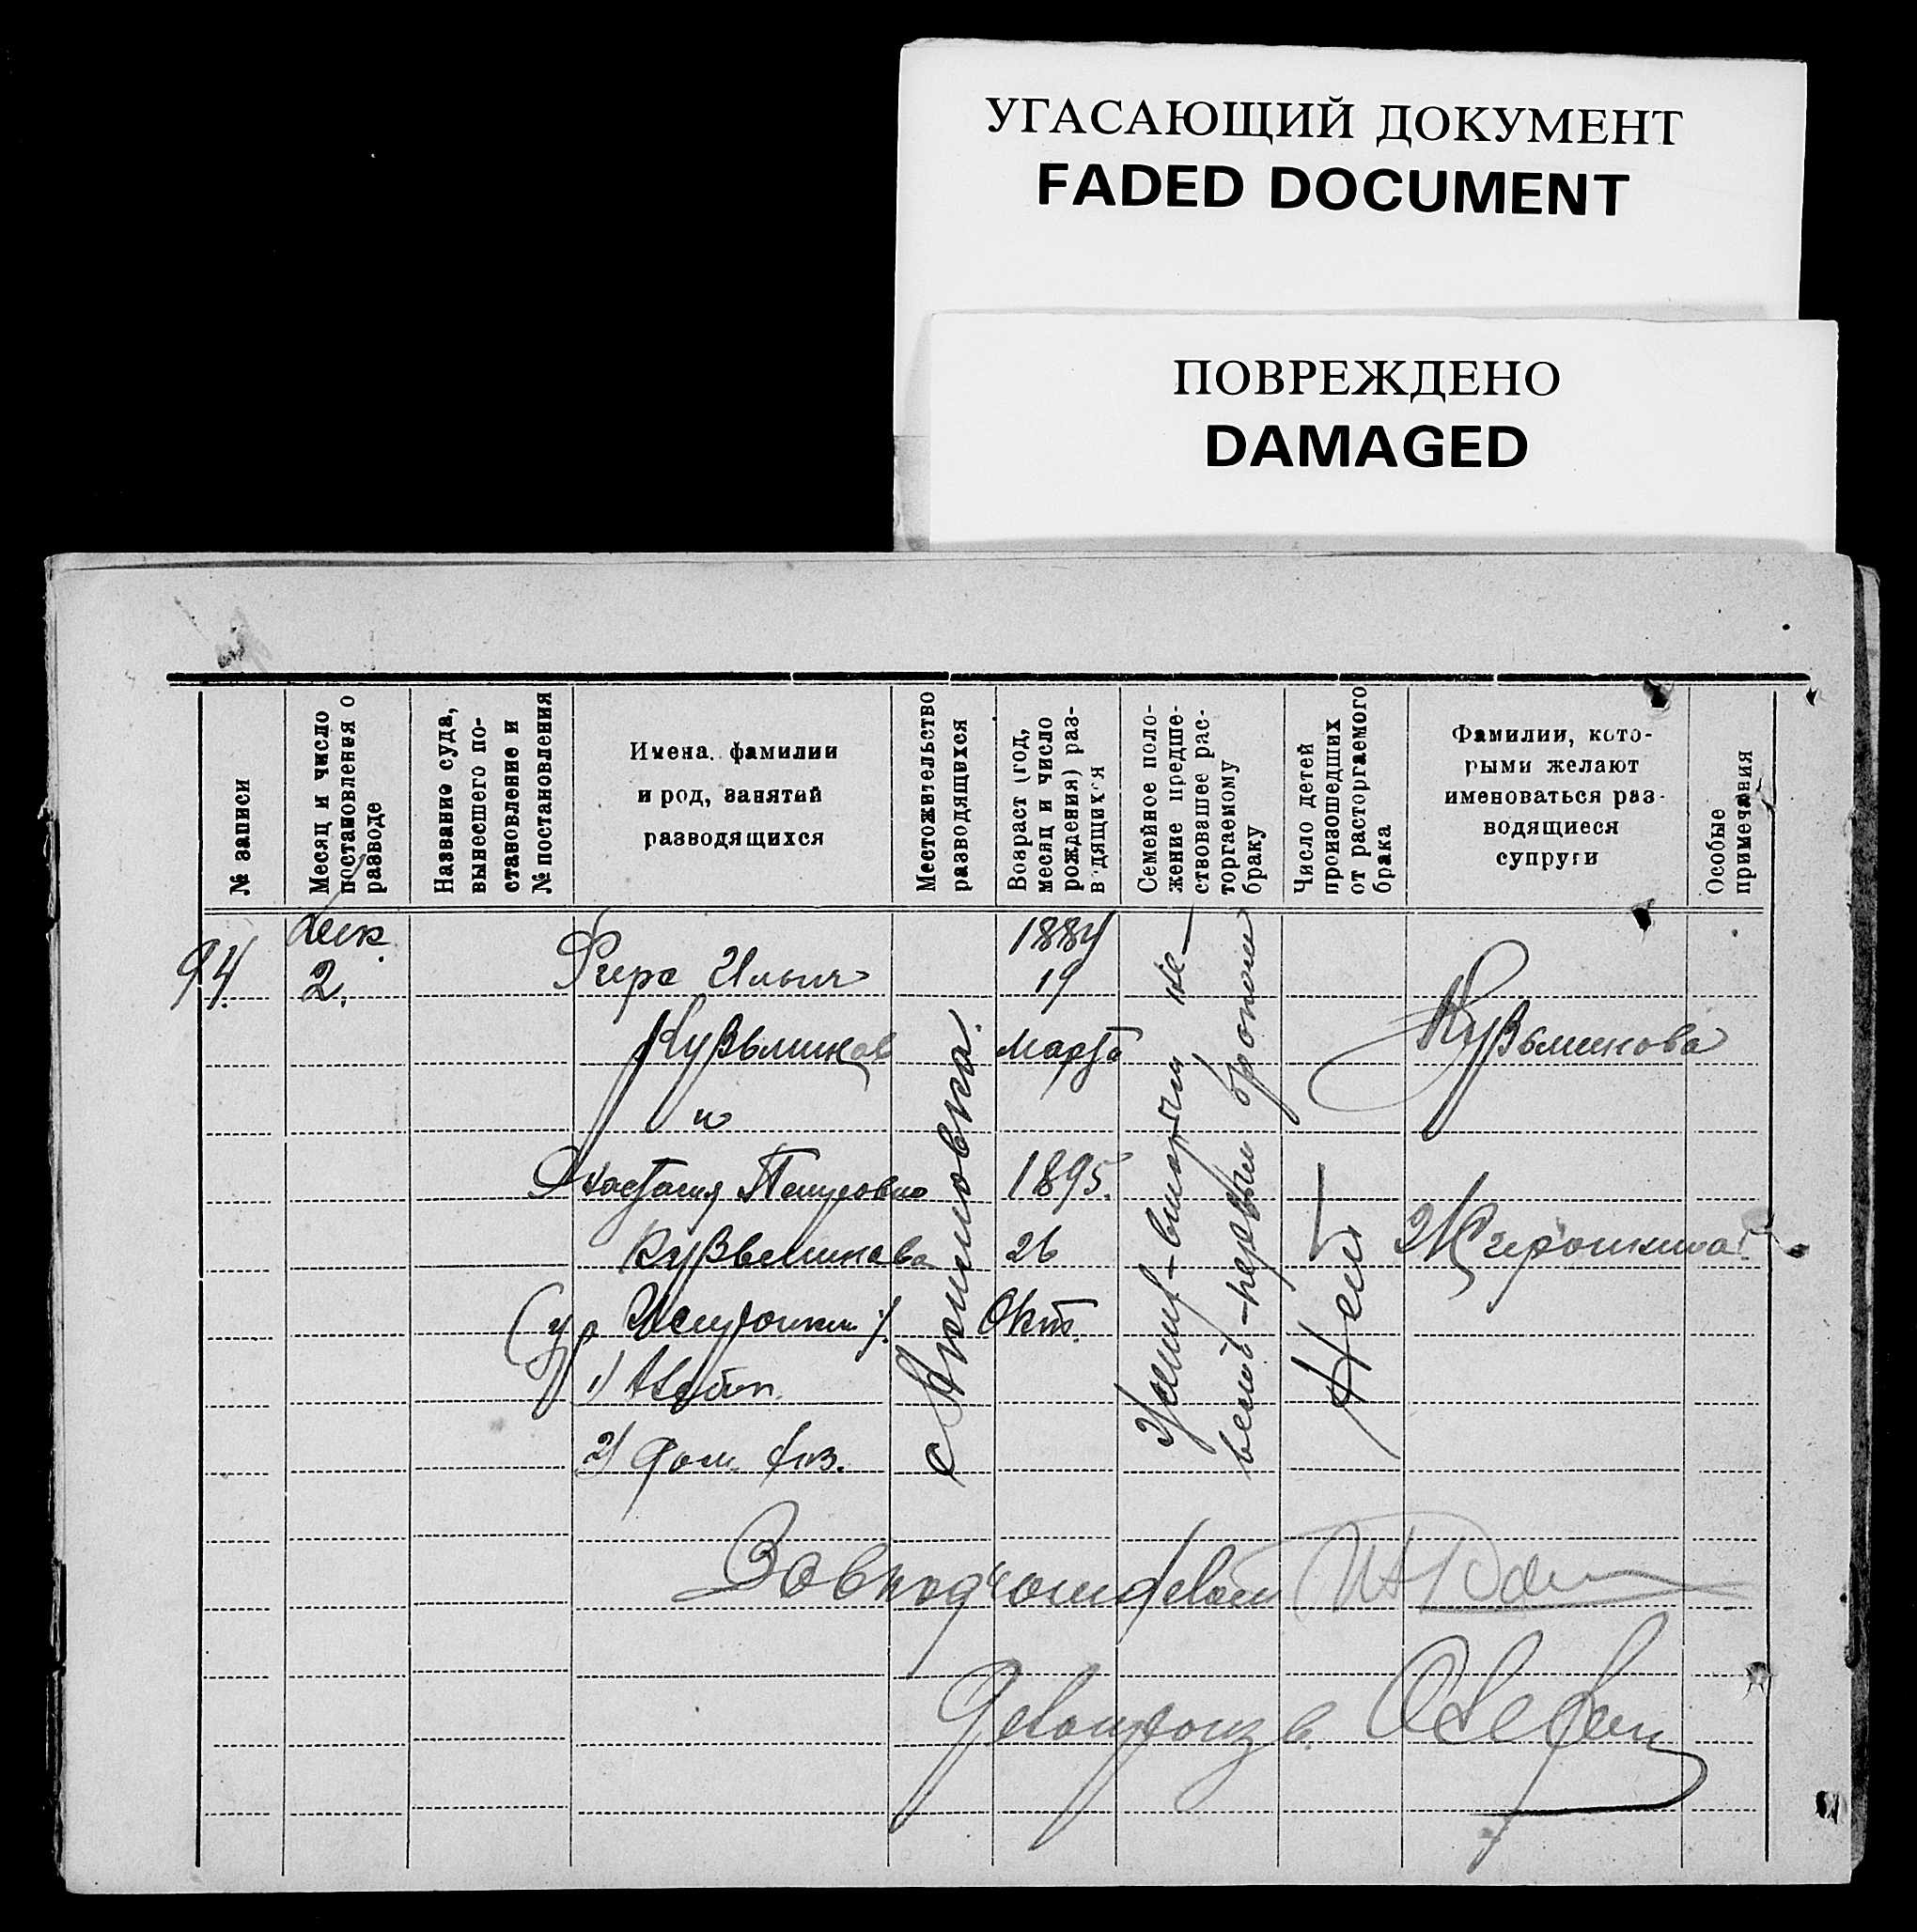 УГАСАЮЩИЙ ДОКУМЕНТ
FADED DOCUMENT
ПОВРЕЖДЕНО
DAMAGED
№ записи
Месяц и число
постановления о
разводе
Название суда,
вынесшего по-
становление и
№ постановления
Имена. фамилии
и род, занятий
разводящихся
Местожительство
разводящихся
Возраст (год,
месяц и число
рождения) раз-
водящихся
Семейное поло-
жение предше-
ствовавшее рас-
торгаемому
браку
Число детей
произошедших
от расторгаемого
брака
Фамилии, кото-
рыми желают
именоваться раз-
водящиеся
супруги
Особые
примечания
94.
Дек.
2.
Фирс Ильич
Кузьминов
и
Анастасия
Кузьминова
(ур
1)
2) Дом. хоз.
с Акимовка.
1884
19
марта
1895.
26
Окт.
вторым
первым браком
Нет
Кузьминова
Завподотделом
Делопроизв.